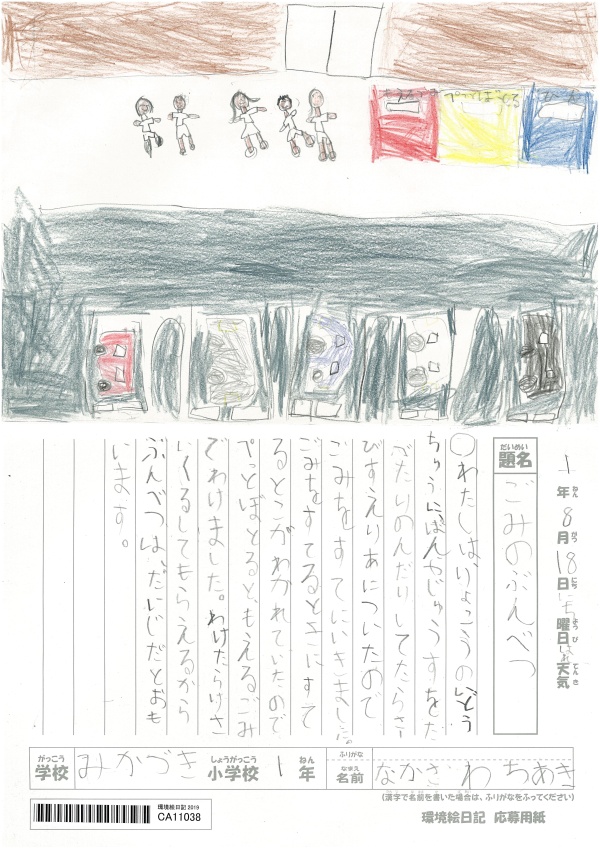 もえるごみ
ぺっとぼとる
1年8月18日にち曜日はれ天気
ねん がつ にち ようび てんき
だいめい
題名
ごみのぶんべつ
○わたしは、りょこうのと
ちゅうに、ぱんやじゅうすをた
べたりのんだりしてたらさー
びすえりあについたので
ごみをすてにいきました。
ごみをすてるときに、すて
るところがわかれていたので
ぺっとぼとると、もえるごみ
でわけました。わけたらりさ
いくるしてもらえるから
ぶんべつは、だいじだとおも
います。
がっこう しょうがっこう ねん ふりがな
学校 みかづき 小学校 1年
なまえ
名前 なかざわ ちあき
(漢字で名前を書いた場合は、ふりがなをふってください)
環境絵日記 2019
CA11038
環境絵日記 応募用紙